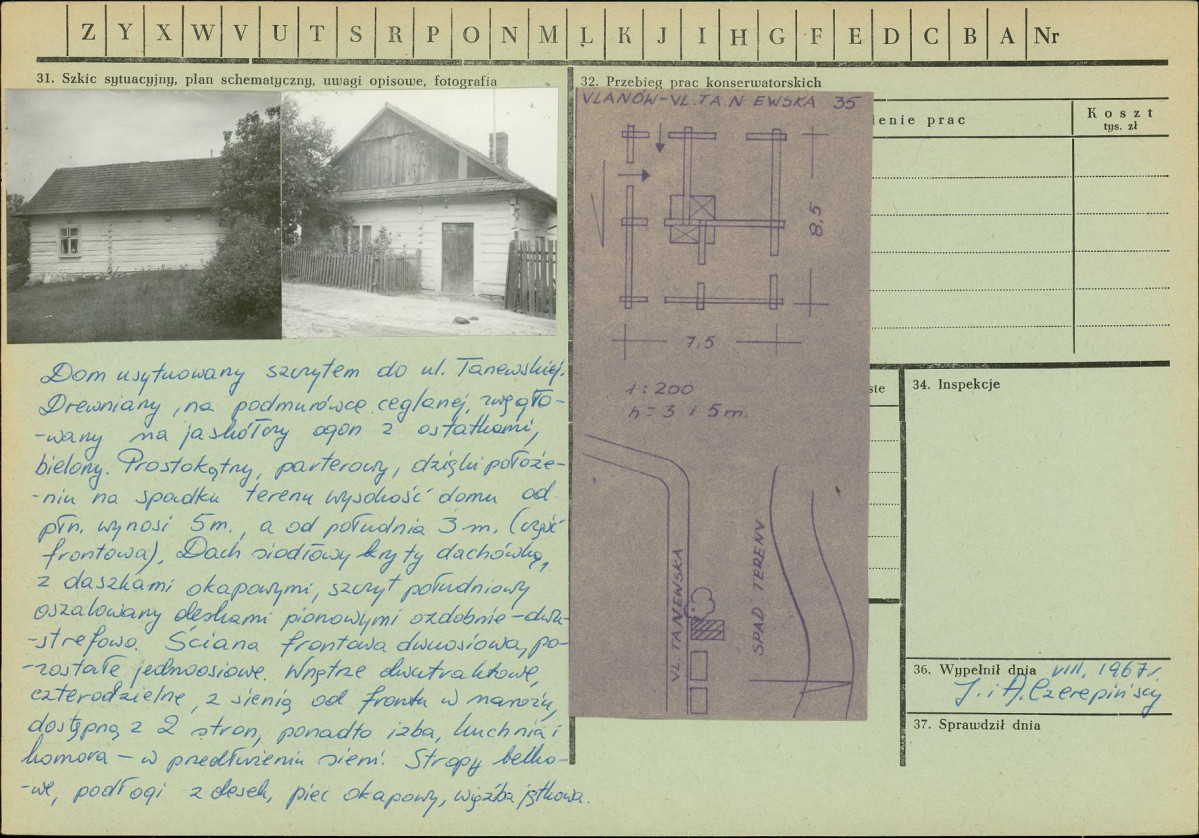 Z Y X W V U T S R P O N M Ł K J I H G F E D C B A Nr
31. Szkic sytuacyjny, plan schematyczny, uwagi opisowe, fotografia
Dom usytuowany szczytem do ul. Tanewskiej.
Drewniany, na podmurówce ceglanej, zwęgło-
-wany na jaskółczy ogon z ostatkami,
bielony. Prostokątny, parterowy, dzięki położe-
-niu na spadku terenu wysokość domu od
płn. wynosi 5m., a od południa 3 m. (część
frontowa). Dach siodłowy kryty dachówką,
z daszkami okapowymi, szczyt południowy
oszalowany deskami pionowymi ozdobnie - dwu-
-strefowo. Ściana frontowa dwuosiowa, po-
-zostałe jednoosiowe. Wnętrze dwutraktowe,
czterodzielne, z sienią od frontu w narożu,
dostępną z 2 stron, ponadto izba, kuchnia i
komora - w przedłużeniu sieni. Stropy belko-
-we, podłogi z desek, piec okapowy, więźba jętkowa.
32. Przebieg prac konserwatorskich
ienie prac
Koszt
tys. zł
VLANÓW-VL. TANEWSKA 35
8,5
7,5
1:200
h = 3 i 5 m.
VL. TANEWSKA
SPAD TERENV
ste
34. Inspekcje
36. Wypełnił dnia VIII. 1967 r.
J. i A. Czerepińscy
37. Sprawdził dnia